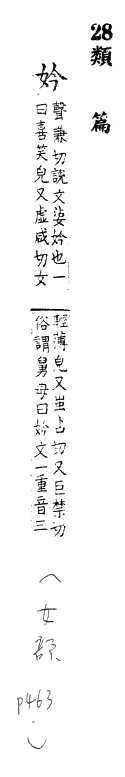 28類 篇
妗
聲兼切說文婆妗也一
曰喜笑皃又虛咸切女
輕薄皃又蚩占切又巨禁切
俗謂舅母曰妗文一重音三
(女部
p463.)